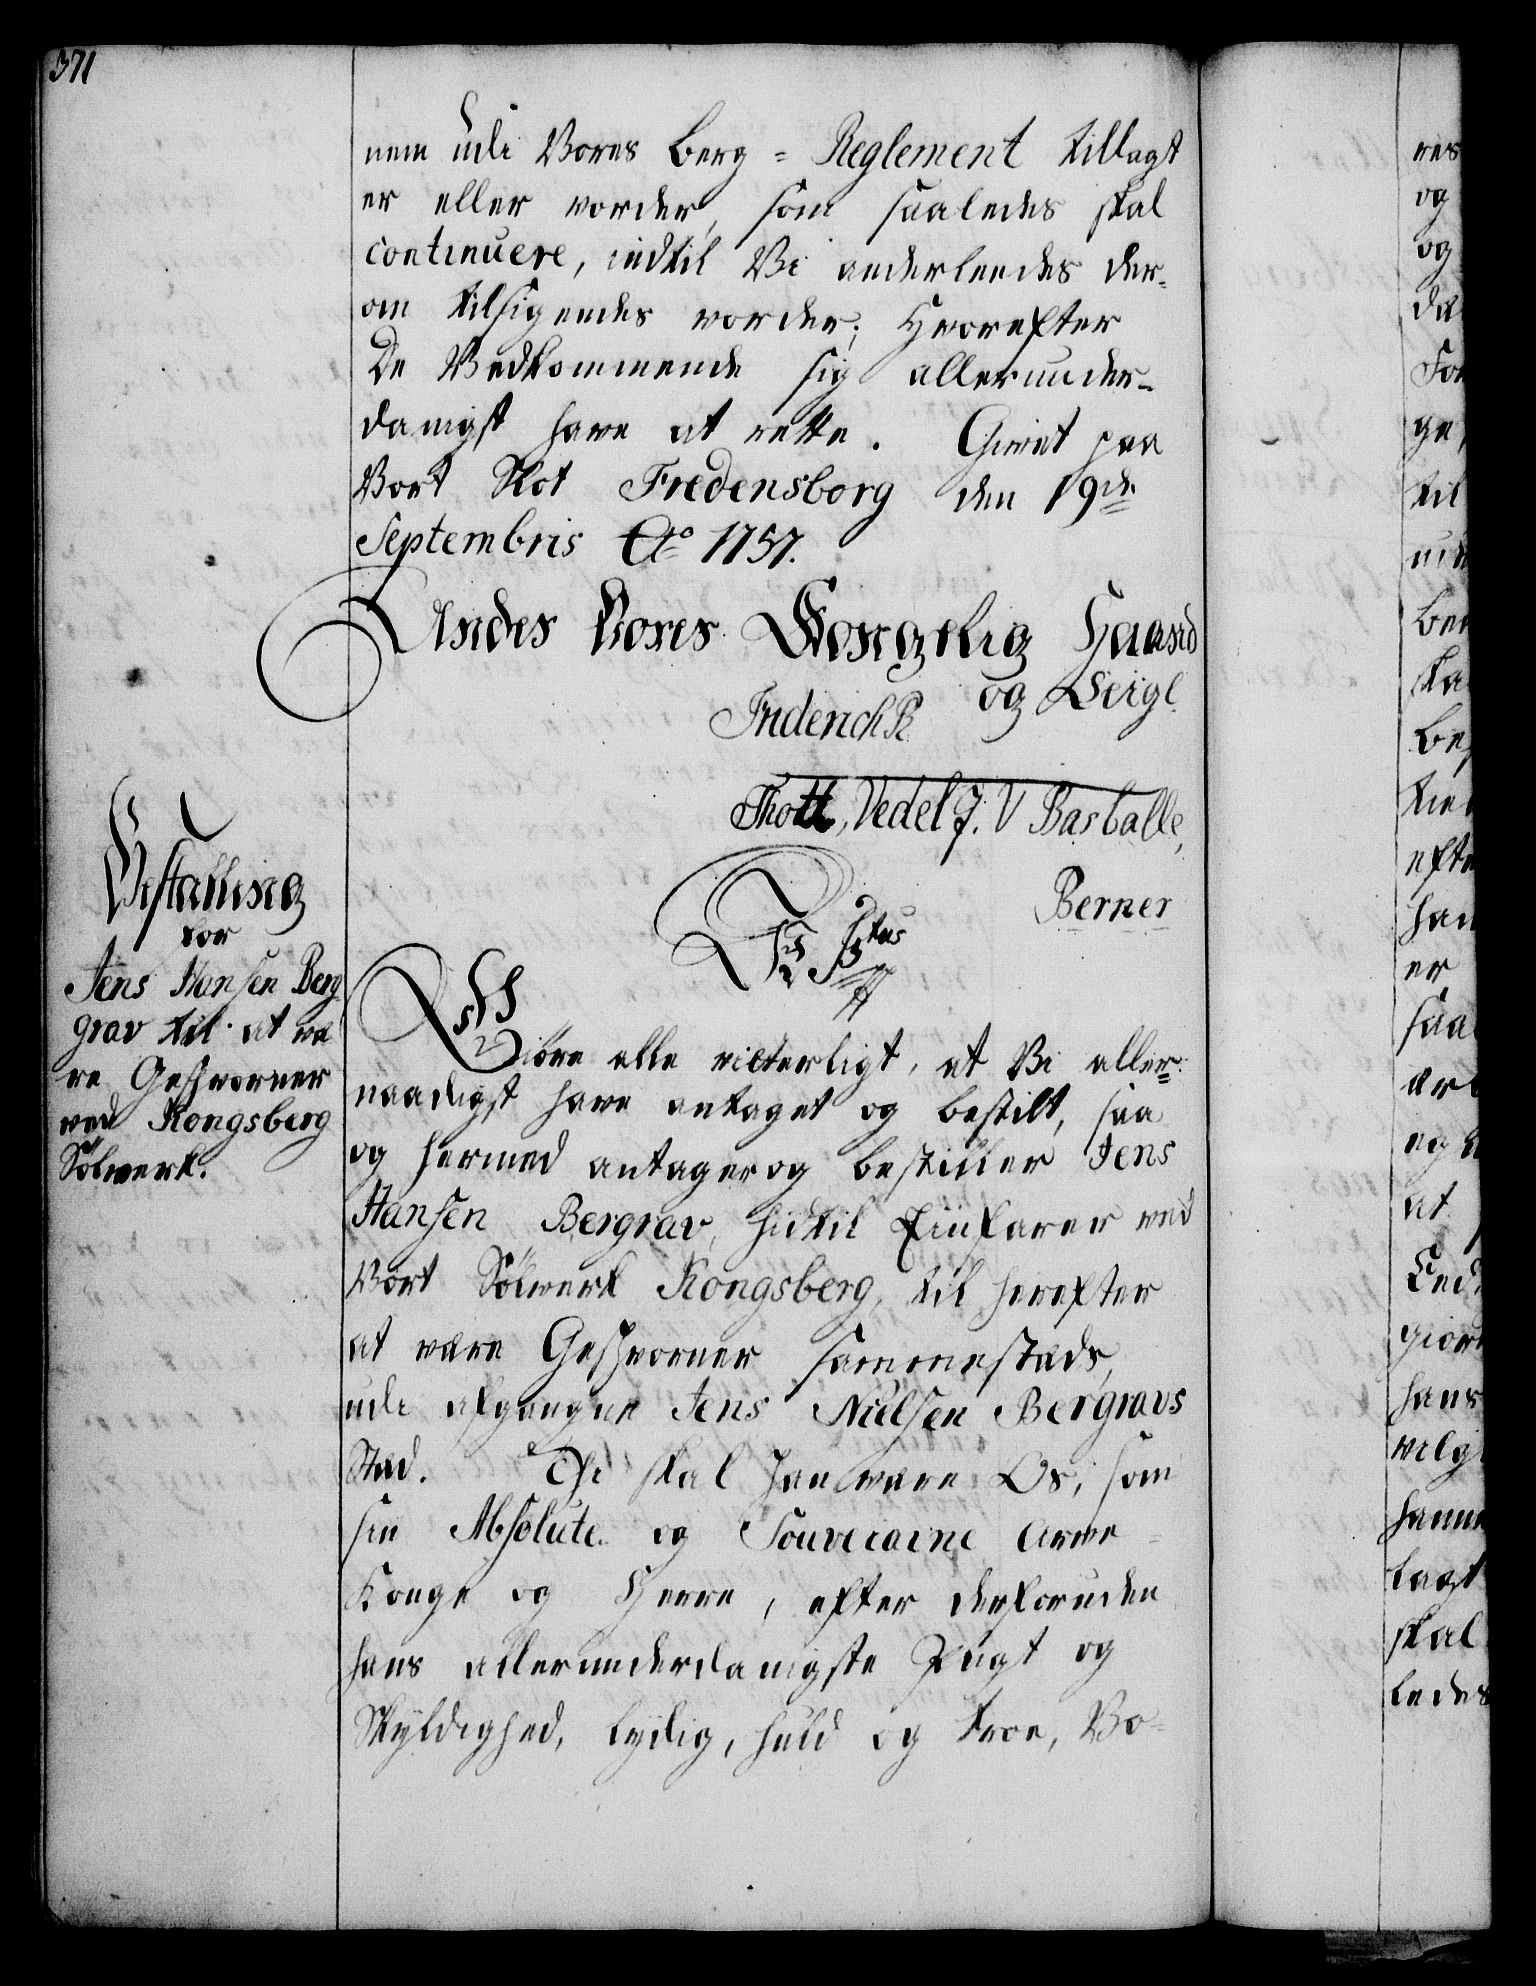 371
nem udi Vores Berg-Reglement tillagt
er eller vorder, som saaledes skal
continuere, indtil Vi anderleedes der-
om tilsigendes vorder; Hvorefter
De Vedkommende sig allerunder-
danigst have at rette. Givet paa
Vort Slot Fredensborg den 19de
Septembris Ao 1757.
Under Vores Kongelig Haand
og Seigl
Friderich R
Thott, Vedel J. V Basballe,
Berner
Bestalling
for
Jens Hansen Berg
grav til at væ
re Geschworner
ved Kongsberg
Sölwerk.
F 5tus
Giöre alle vitterligt, at Vi aller-
naadigst have antaget og bestilt, saa
og hermed antager og bestiller Jens
Hansen Bergrav, hidtil Einfarer ved
Vort Sölwerk Kongsberg, til herefter
at være Geschworner sammestæds,
udi afgangne Jens Nielsen Bergravs
Stæd. Thi skal han være Os, som
sin Absolute og Souveraine Arve-
Konge og Herre, efter derforuden
hans allerunderdanigste Pligt og
Skyldighed, lydig, huld og troe, Vo-
res
og
og
da
ge,
til
ska
efte
han
er
saa
og
at
giort
hans
lagt
skal
ledes